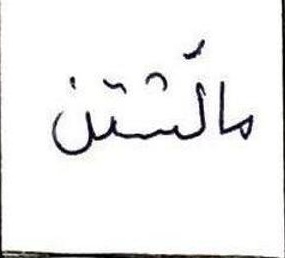 ماڵشتن